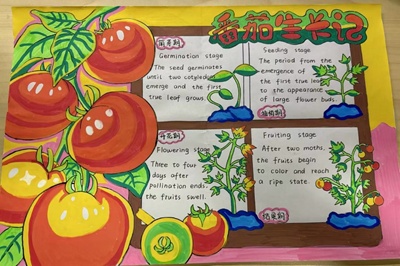 番茄生长记
萌芽期
Germination stage
The seed germinates
until two cotyledons
emerge and the first
true leaf grows.
Seeding stage
The period from the
emergence of
the first true leaf
to the appearance
of large flower buds.
幼苗期
开花期
Flowering stage
Three to four
days after
pollination ends,
the fruits swell.
Fruiting stage
After two moths,
the fruits begin
to color and reach
a ripe state.
结果期